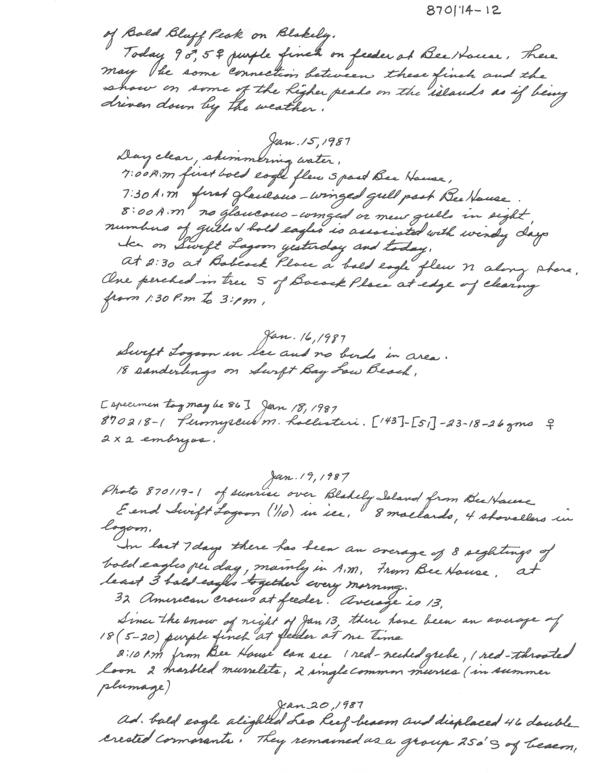 870114-12
of Bald Bluff Peak on Blakely.
Today 9♂, 5♀ purple finch on feeder at Bee House. There
may be some connection between these finch and the
snow on some of the higher peaks on the islands as if being
driven down by the weather.
Jan. 15, 1987
Day clear, shimmering water.
7:00 A.M first bald eagle flew S past Bee House,
7:30 A.M first glaucous-winged gull past Bee House.
8:00 A.M no glaucous-winged or mew gulls in sight,
numbers of gulls & bald eagles is associated with windy days
Ice on Swift Lagoon yesterday and today.
At 2:30 at Babcock Place a bald eagle flew N along shore.
One perched in tree S of Bocock Place at edge of clearing
from 1:30 P.m to 3:1pm.
Jan. 16, 1987
Swift Lagoon in ice and no birds in area.
18 sanderlings on Swift Bay Low Beach.
[specimen tag may be 86] Jan 18, 1987
870218-1 Peromyscus m. hollisteri. [143]-[51]-23-18-26 gms ♀
2 x 2 embryos.
Jan. 19, 1987
Photo 870119-1 of sunrise over Blakely Island from Bee House
E end Swift Lagoon (1/10) in ice. 8 mallards, 4 shovellers in
lagoon.
In last 7 days there has been an average of 8 sightings of
bald eagles per day, mainly in A.M. From Bee House. At
least 3 bald eagles together every morning.
32 American crows at feeder. Average is 13.
Since the snow of night of Jan 13, there have been an average of
18 (5-20) purple finch at feeder at one time
2:10 PM from Bee House can see 1 red-necked grebe, 1 red-throated
loon 2 marbled murrelets, 2 single common murres (in summer
plumage)
Jan 20, 1987
Ad. bald eagle alighted Leo Reef beacon and displaced 46 double
crested cormorants. They remained as a group 250' S of beacon,